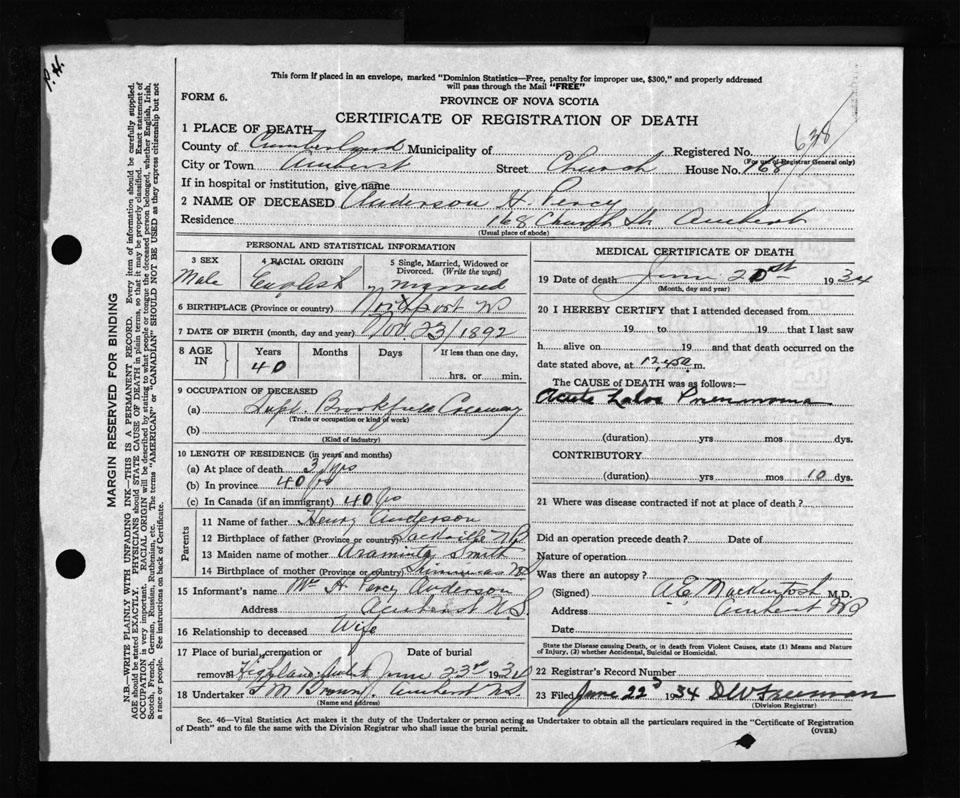 P. H.
This form if placed in an envelope, marked "Dominion Statistics—Free, penalty for improper use, $300," and properly addressed
will pass through the Mail "FREE"
FORM 6.
PROVINCE OF NOVA SCOTIA
CERTIFICATE OF REGISTRATION OF DEATH
638
1 PLACE OF DEATH
County of Cumberland Municipality of Registered No.
(For use of Registrar General only)
City or Town Amherst Street Church House No. 168
If in hospital or institution, give name
2 NAME OF DECEASED Anderson H. Percy
Residence 168 Church St. Amherst
(Usual place of abode)
PERSONAL AND STATISTICAL INFORMATION
3 SEX Male
4 RACIAL ORIGIN English
5 Single, Married, Widowed or Divorced. (Write the word) Married
6 BIRTHPLACE (Province or country) Northport NS
7 DATE OF BIRTH (month, day and year) Nov. 23/1892
8 AGE IN Years 40 Months Days If less than one day, hrs. or min.
9 OCCUPATION OF DECEASED
(a) Supt. Brookfield Creamery
(Trade or occupation or kind of work)
(b)
(Kind of industry)
10 LENGTH OF RESIDENCE (in years and months)
(a) At place of death 3 yrs
(b) In province 40 yrs
(c) In Canada (if an immigrant) 40 yrs
Parents
11 Name of father Henry Anderson
12 Birthplace of father (Province or country) Sackville NB
13 Maiden name of mother Araminta Smith
14 Birthplace of mother (Province or country) NS
15 Informant's name Mrs H Percy Anderson
Address Amherst N.S.
16 Relationship to deceased Wife
17 Place of burial, cremation or removal Date of burial
Highland June 23rd 1934
18 Undertaker Brown Amherst NS
(Name and address)
MEDICAL CERTIFICATE OF DEATH
19 Date of death June 20st 1934
(Month, day and year)
20 I HEREBY CERTIFY that I attended deceased from
19 to 19 that I last saw
h alive on 19 and that death occurred on the
date stated above, at 12,450 m.
The CAUSE OF DEATH was as follows:—
Acute Lobar Pneumonia
(duration) yrs mos dys.
CONTRIBUTORY
(duration) yrs mos 10 dys.
21 Where was disease contracted if not at place of death?
Did an operation precede death? Date of
Nature of operation
Was there an autopsy?
(Signed) A.E. Mackintosh M.D.
Address Amherst NS
Date
State the Disease causing Death, or in death from Violent Causes, state (1) Means and Nature
of Injury, (2) whether Accidental, Suicidal or Homicidal.
22 Registrar's Record Number
23 Filed June 22d 1934 D W Freeman
(Division Registrar)
Sec. 46—Vital Statistics Act makes it the duty of the Undertaker or person acting as Undertaker to obtain all the particulars required in the "Certificate of Registration
of Death" and to file the same with the Division Registrar who shall issue the burial permit.
(OVER)
MARGIN RESERVED FOR BINDING
N.B.—WRITE PLAINLY WITH UNFADING INK—THIS IS A PERMANENT RECORD. Every item of information should be carefully supplied.
AGE should be stated EXACTLY. PHYSICIANS should STATE CAUSE OF DEATH in plain terms, so that it may be properly classified. Exact statement of
OCCUPATION is very important. RACIAL ORIGIN will be described by stating to what people or tongue the deceased person belonged, whether English, Irish,
Scotch, French, German, Russian, Ruthenian, etc. The terms "AMERICAN" or "CANADIAN" SHOULD NOT BE USED as they express citizenship but not
a race or people. See instructions on back of Certificate.